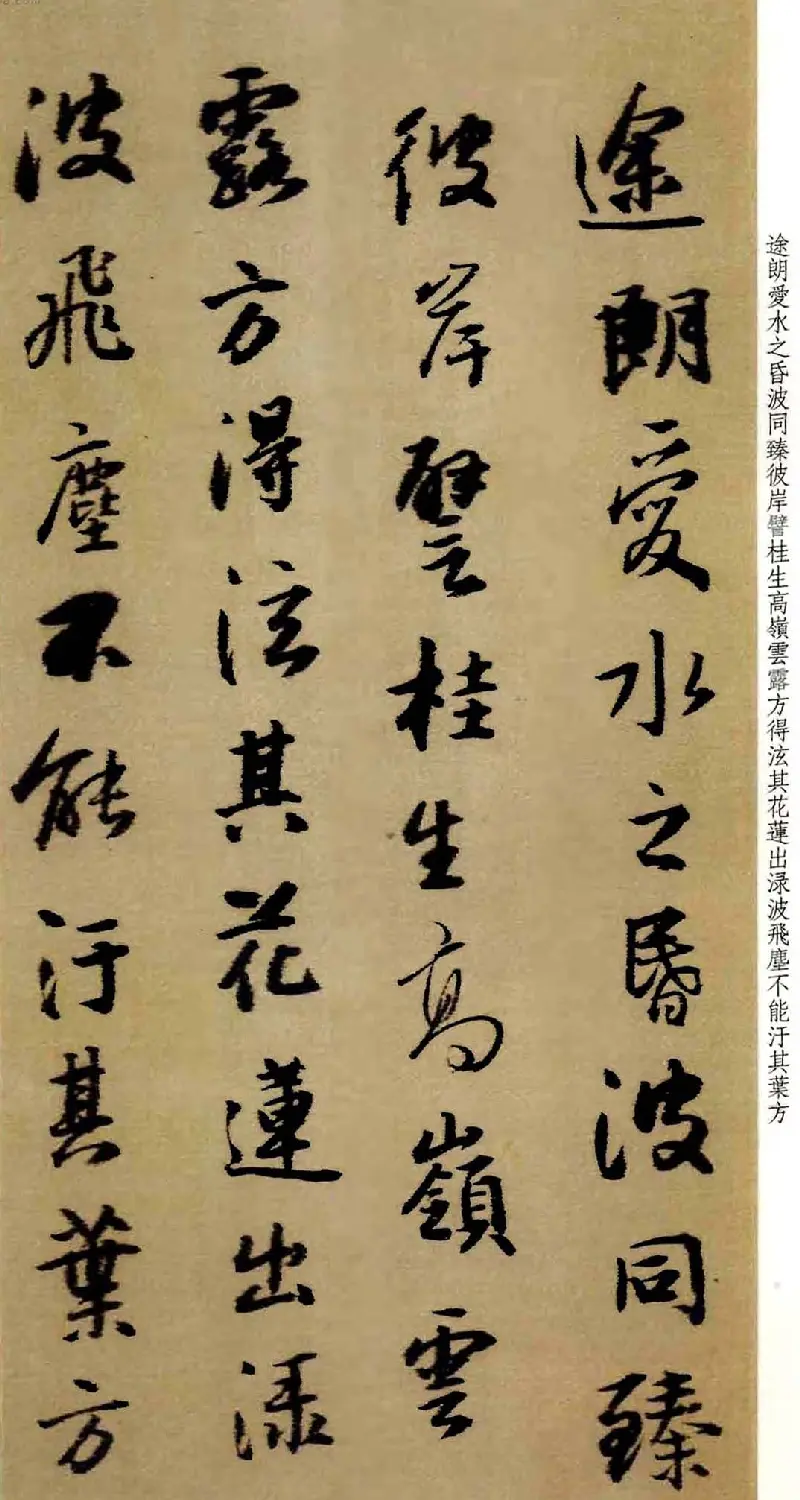 途朗愛水之昏波同臻
彼岸譬桂生高嶺雲
露方得泫其花蓮出渌
波飛塵不能汙其葉方
途朗愛水之昏波同臻彼岸譬桂生高嶺雲露方得泫其花蓮出渌波飛塵不能汙其葉方